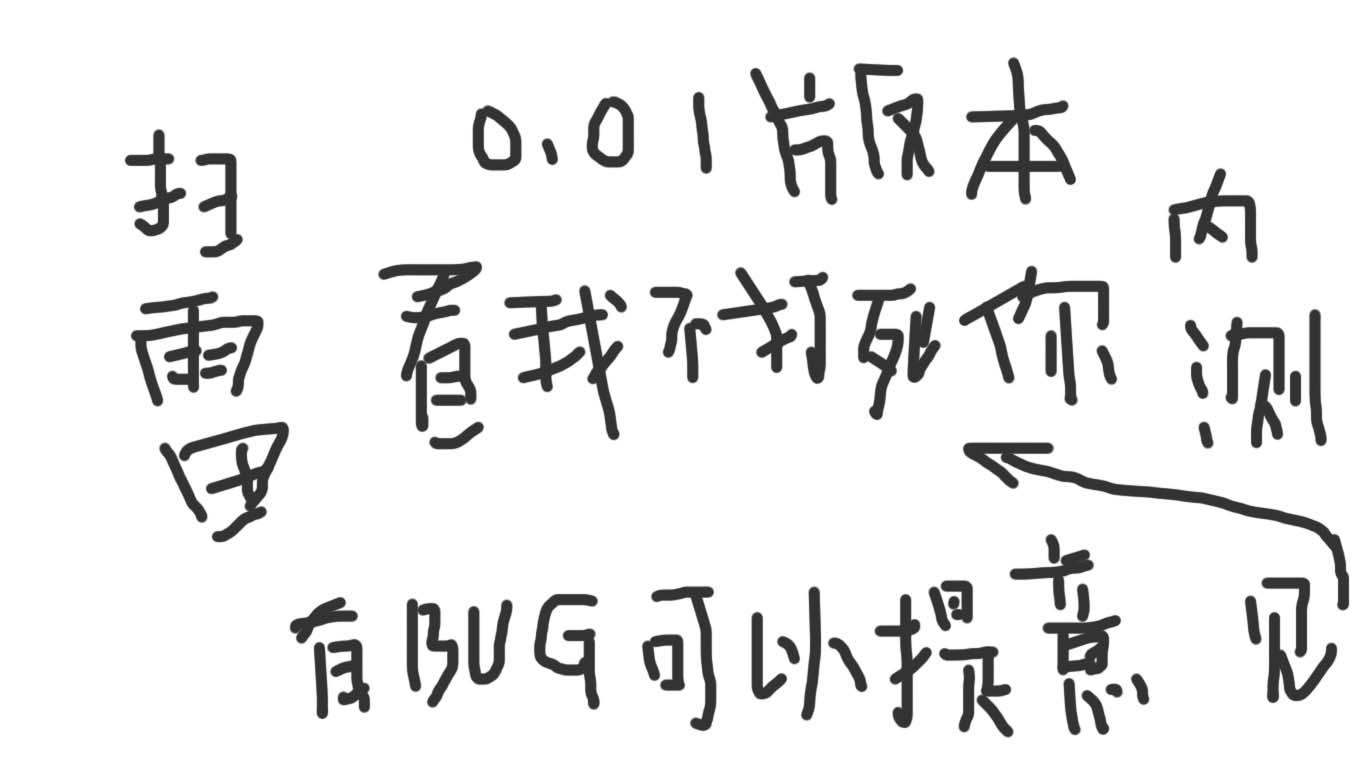 扫雷
0.01版本
看我不打死你
内测
有BUG可以提意见